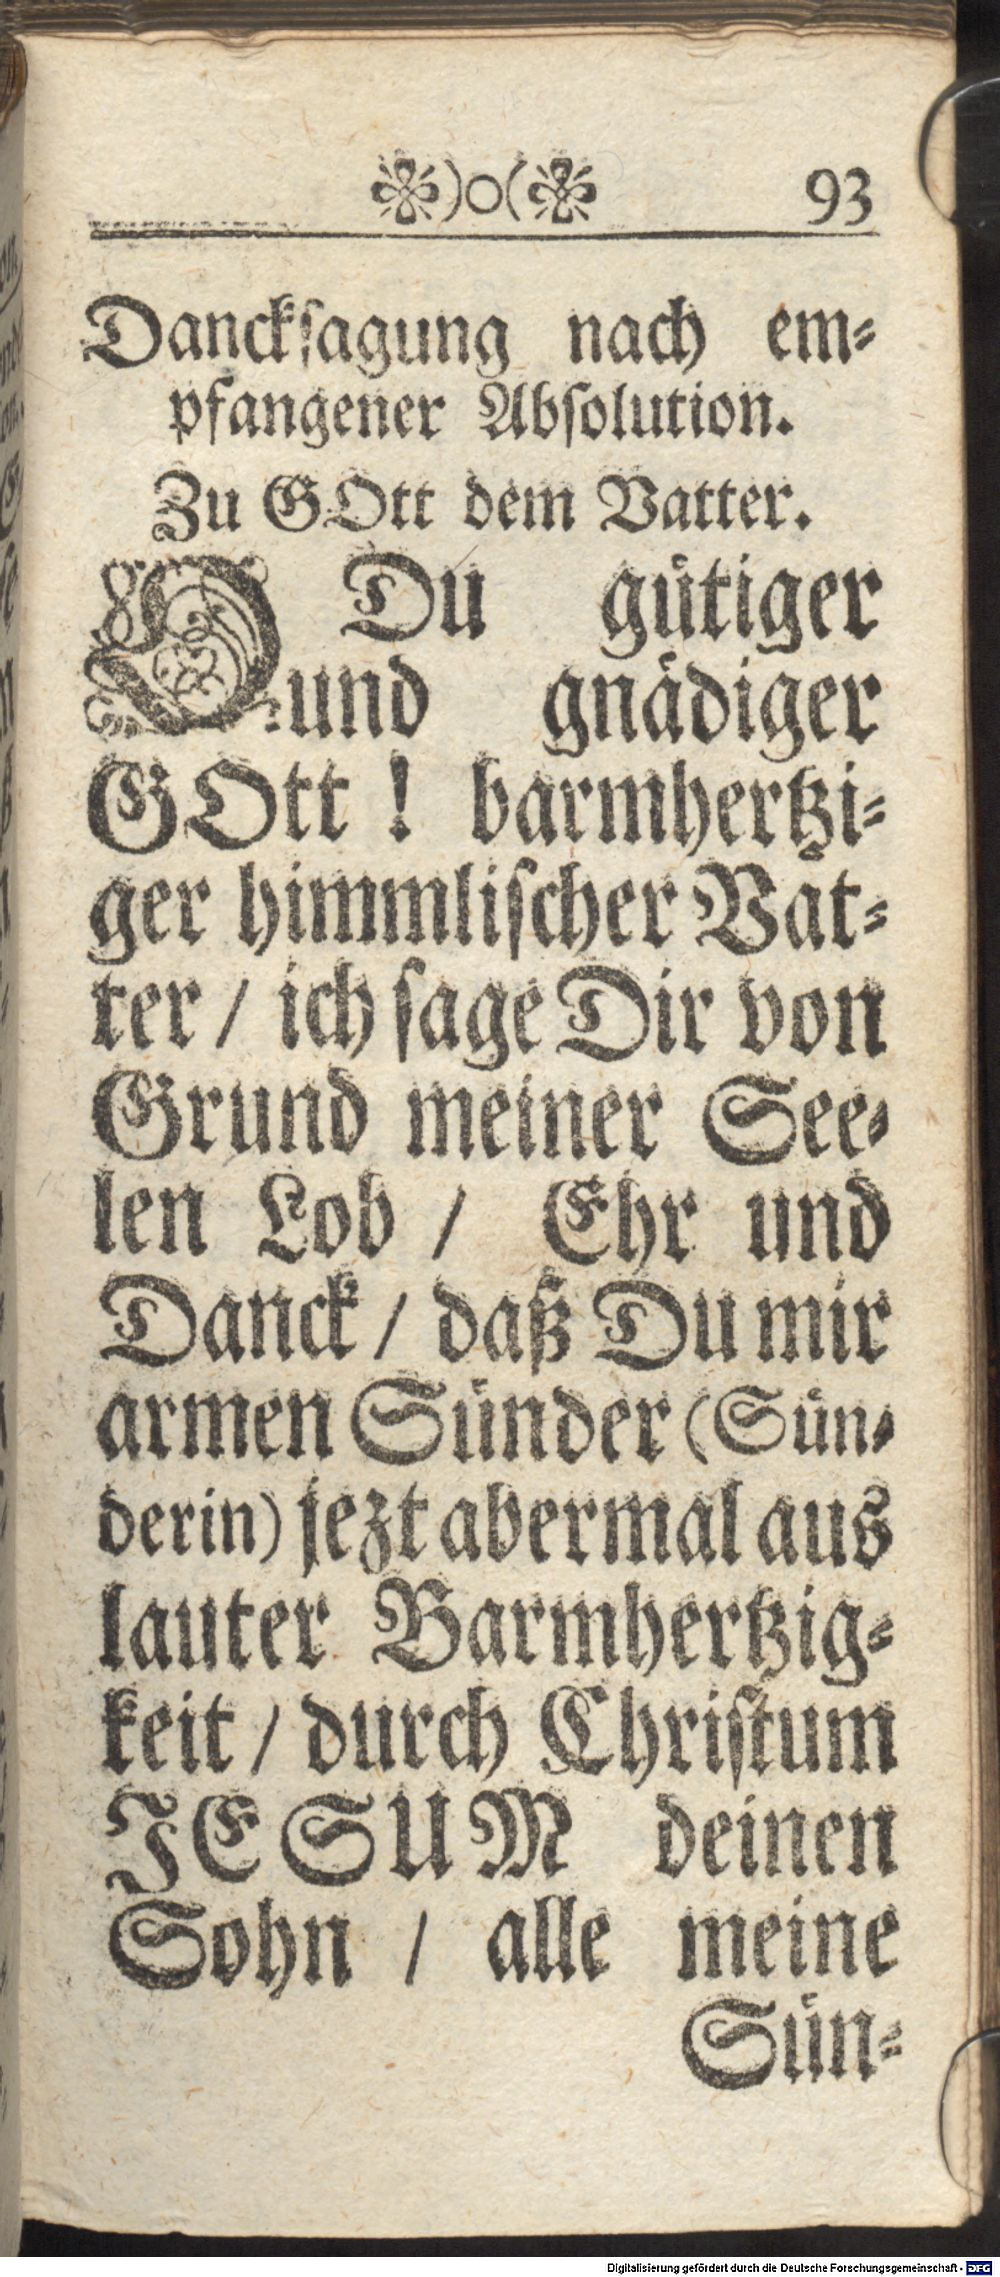 )o( 93
Danckſagung nach em-
pfangener Abſolution.
Zu GOtt dem Vatter.
O Du gütiger
und gnädiger
GOtt! barmhertzi-
ger himmliſcher Vat-
ter / ich ſage Dir von
Grund meiner See-
len Lob / Ehr und
Danck / daß Du mir
armen Sünder (Sün-
derin) jezt abermal aus
lauter Barmhertzig-
keit / durch Chriſtum
JESUM deinen
Sohn / alle meine
Sün-
Digitalisierung gefördert durch die Deutsche Forschungsgemeinschaft - DFG